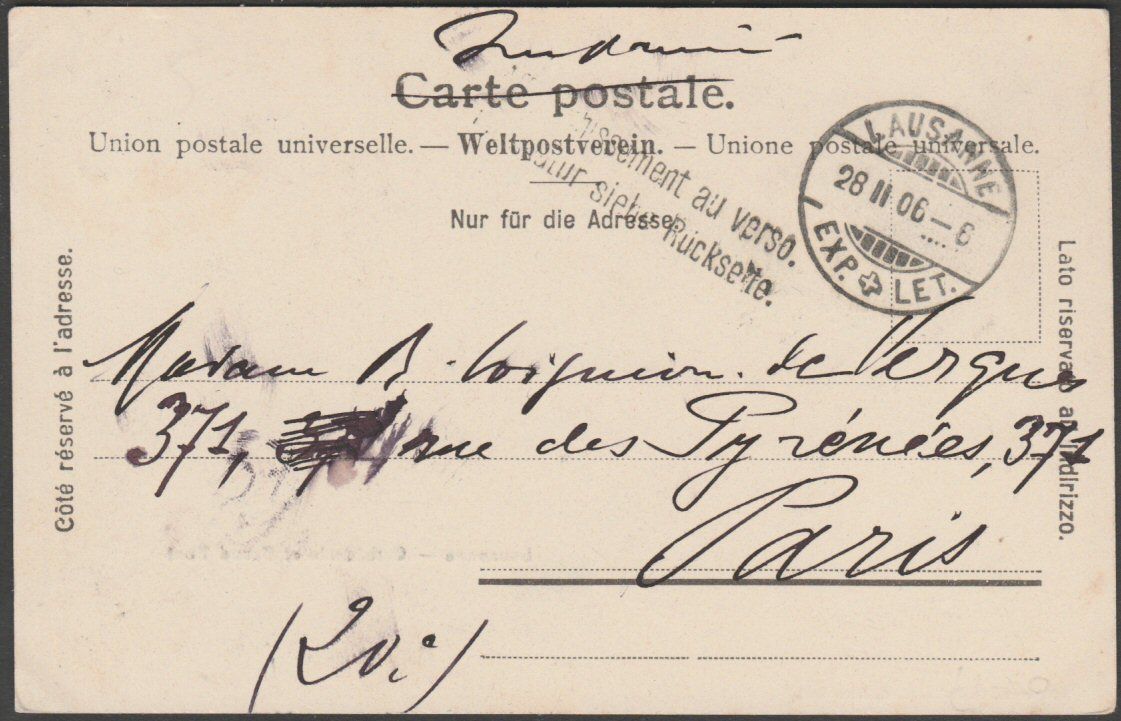 Carte postale.
Union postale universelle. — Weltpostverein. — Unione postale universale.
Nur für die Adresse
issement au verso.
atur siehe Rückseite.
LAUSANNE
28 II 06 — 6
EXP. LET.
Côté réservé à l'adresse.
Lato riservato all'indirizzo.
Madame B. de Vergnes
371, rue des Pyrénées, 371
Paris
(20e)